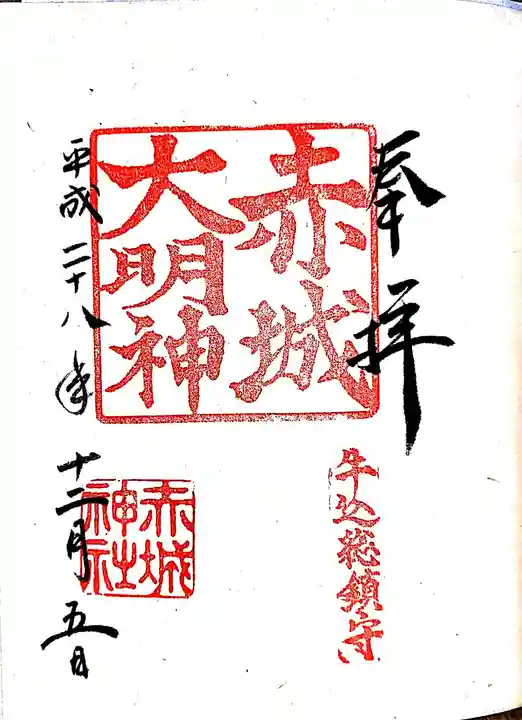 奉拝
赤城
大明神
牛込総鎮守
赤城
神社
平成二十八年十二月五日